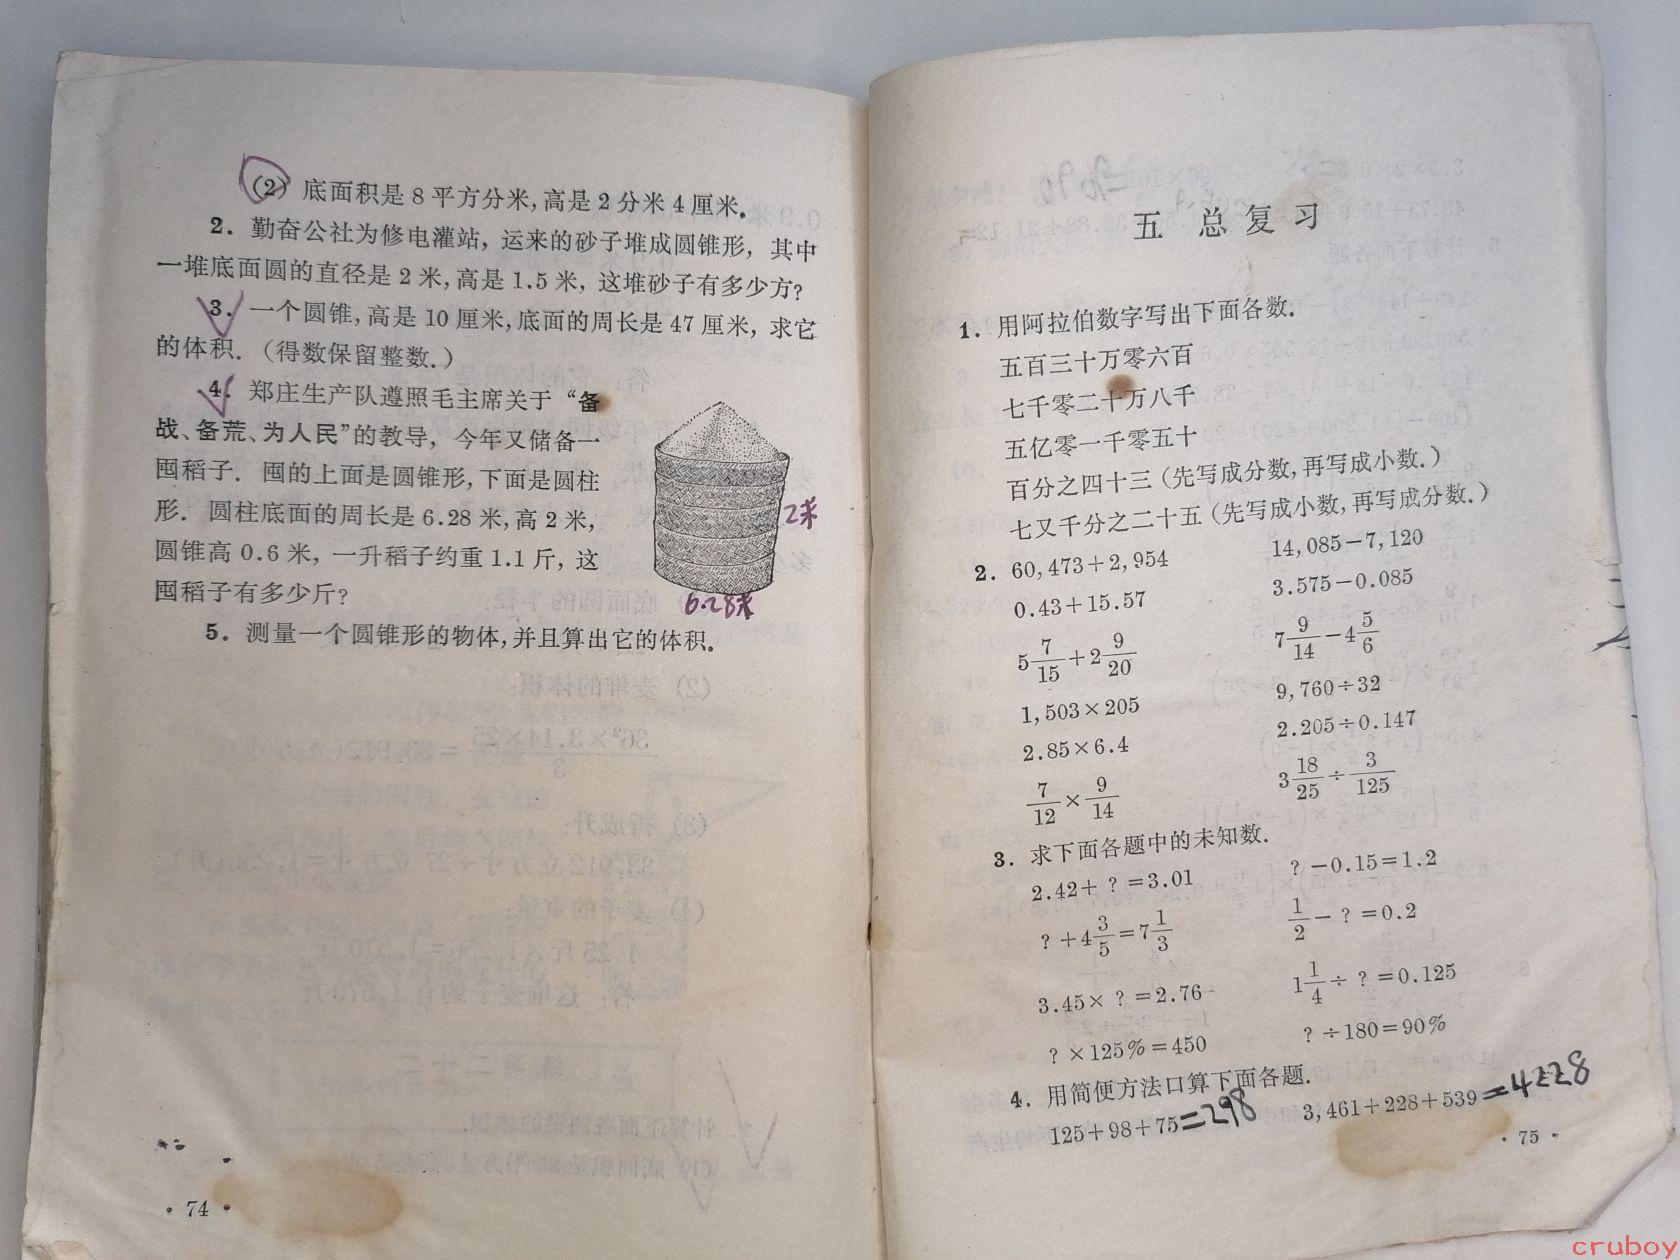 (2) 底面积是8平方分米,高是2分米4厘米.
2. 勤奋公社为修电灌站, 运来的砂子堆成圆锥形, 其中
一堆底面圆的直径是2米,高是1.5米, 这堆砂子有多少方?
3. 一个圆锥,高是10厘米,底面的周长是47厘米, 求它
的体积. (得数保留整数.)
4. 郑庄生产队遵照毛主席关于“备
战、备荒、为人民”的教导, 今年又储备一
囤稻子. 囤的上面是圆锥形,下面是圆柱
形. 圆柱底面的周长是6.28米,高2米,
圆锥高0.6米, 一升稻子约重1.1斤, 这
囤稻子有多少斤?
2米
6.28米
5. 测量一个圆锥形的物体,并且算出它的体积.
· 74 ·
五 总复习
1. 用阿拉伯数字写出下面各数.
五百三十万零六百
七千零二十万八千
五亿零一千零五十
百分之四十三(先写成分数,再写成小数.)
七又千分之二十五(先写成小数,再写成分数.)
2. 60,473+2,954 14,085-7,120
0.43+15.57 3.575-0.085
5 7/15+2 9/20 7 9/14-4 5/6
1,503×205 9,760÷32
2.85×6.4 2.205÷0.147
7/12×9/14 3 18/25÷3/125
3. 求下面各题中的未知数.
2.42+?=3.01 ?-0.15=1.2
?+4 3/5=7 1/3 1/2-?=0.2
3.45×?=2.76 1 1/4÷?=0.125
?×125%=450 ?÷180=90%
4. 用简便方法口算下面各题.
125+98+75=298 3,461+228+539=4228
· 75 ·
cruboy